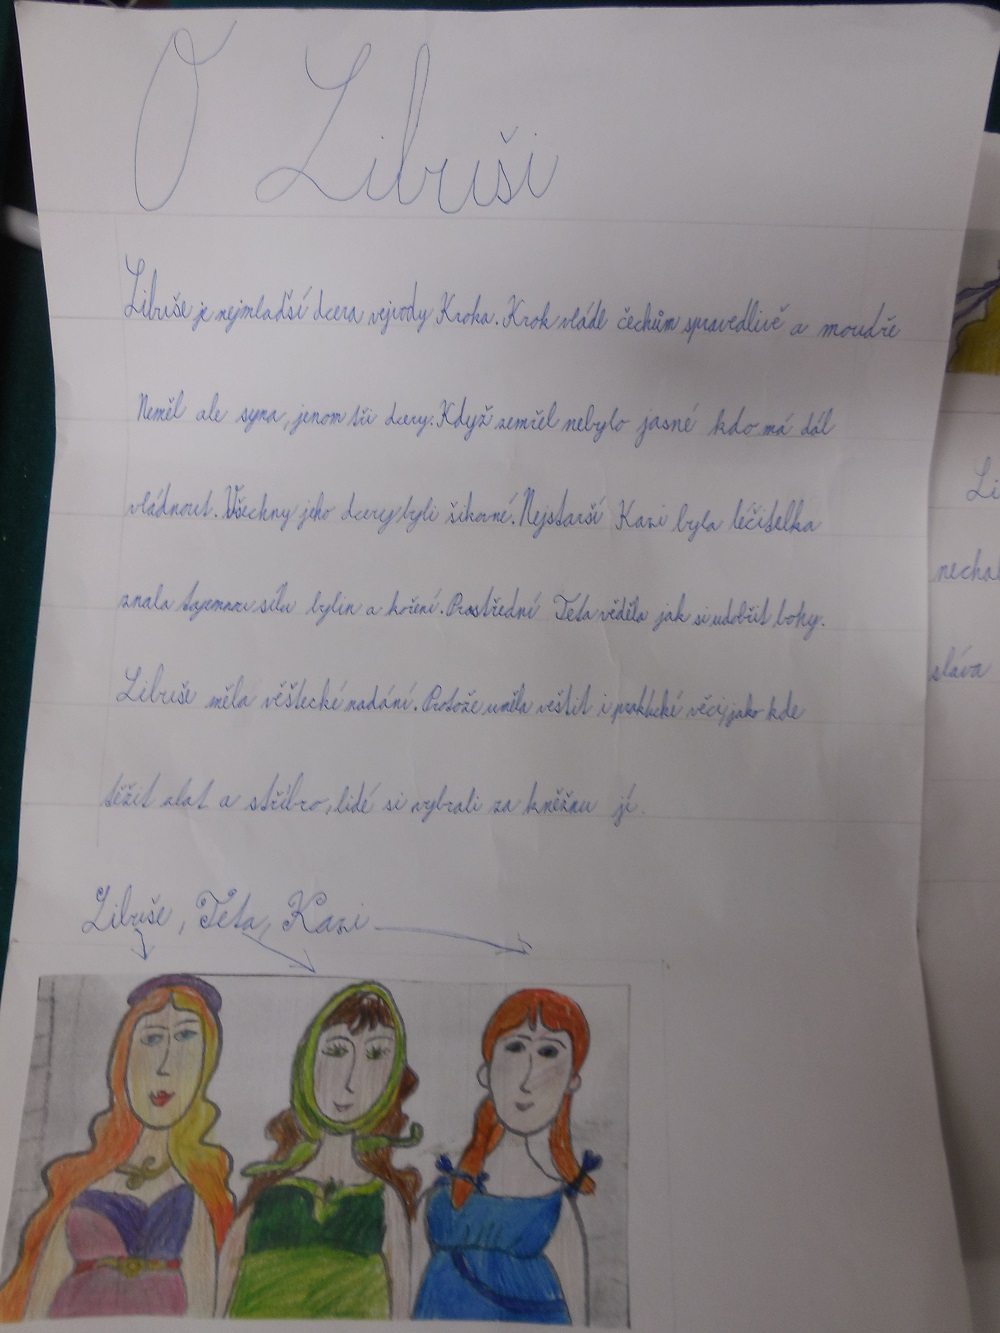 O Libuši
Libuše je nejmladší dcera vejvody Kroka. Krok vládl čechům spravedlivě a moudře
Neměl ale syna, jenom tři dcery. Když zemřel nebylo jasné kdo má dál
vládnout. Všechny jeho dcery byli šikovné. Nejstarší Kazi byla léčitelka
znala sílu bylin a koření. Prostřední Teta věděla jak si udobřit bohy.
Libuše měla věštecké nadání. Protože uměla věštit i praktické věci, jako kde
těžit zlat a stříbro, lidé si vybrali za kněžnu jí.
Libuše, Teta, Kazi
Li
necha
sláva